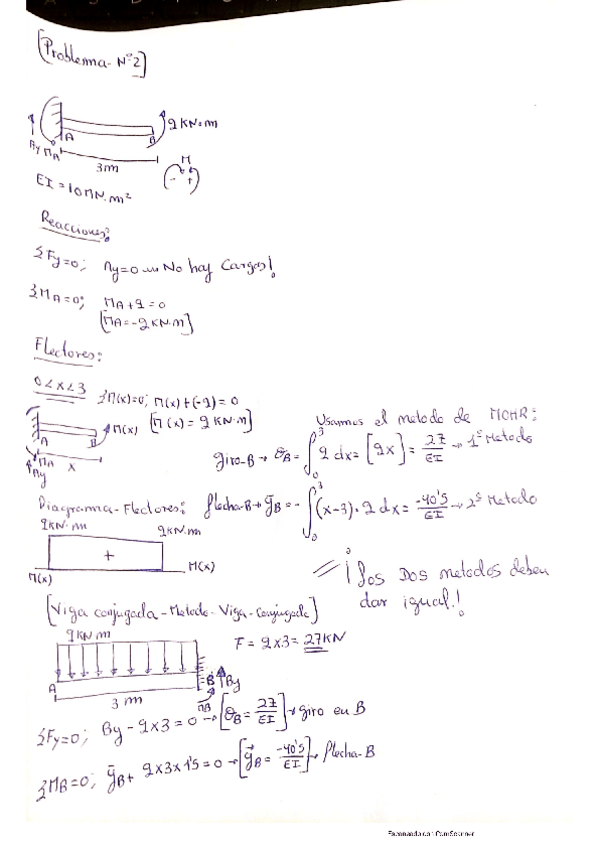 [Problema-Nº2]
9 KN·m
A
B
By MA
3m
M
- +
EI = 10MN·m²
Reacciones:
ΣFy=0; Ay=0 No hay Cargas!
ΣMA=0; MA+9=0
[MA=-9KN·m]
Flectores:
0<x<3 ΣM(x)=0; M(x)+(-9)=0
[M(x)=9KN·m]
A B M(x)
MA x
Ay
Usamos el metodo de MOHR:
giro-B → θB = ∫₀³ 9 dx = [9x] = 27/EI → 1º Metodo
Diagrama-Flectores:
flecha-B → ȳB = -∫₀³ (x-3)·9 dx = -40'5/EI → 2º Metodo
9KN·m 9KN·m
+
M(x) M(x)
¡Los Dos metodos deben
dar igual!
[Viga conjugada-Metodo-Viga-Conjugada]
9KN·m
F = 9x3 = 27KN
A B By
3m MB
ΣFy=0; By-9x3=0 → [θB = 27/EI] → giro en B
ΣMB=0; ȳB+ 9x3x1'5=0 → [ȳB = -40'5/EI] → flecha-B
Escaneado con CamScanner